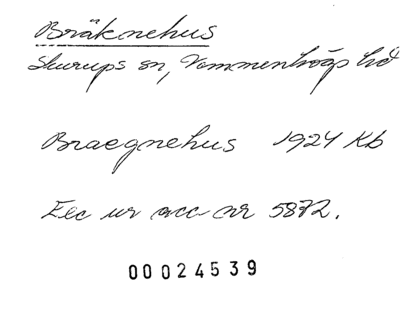 Bräknehus
Skurups sn, Vemmenhögs hd
Braegnehus 1924 Kb
Exc ur acc nr 5872.
00024539